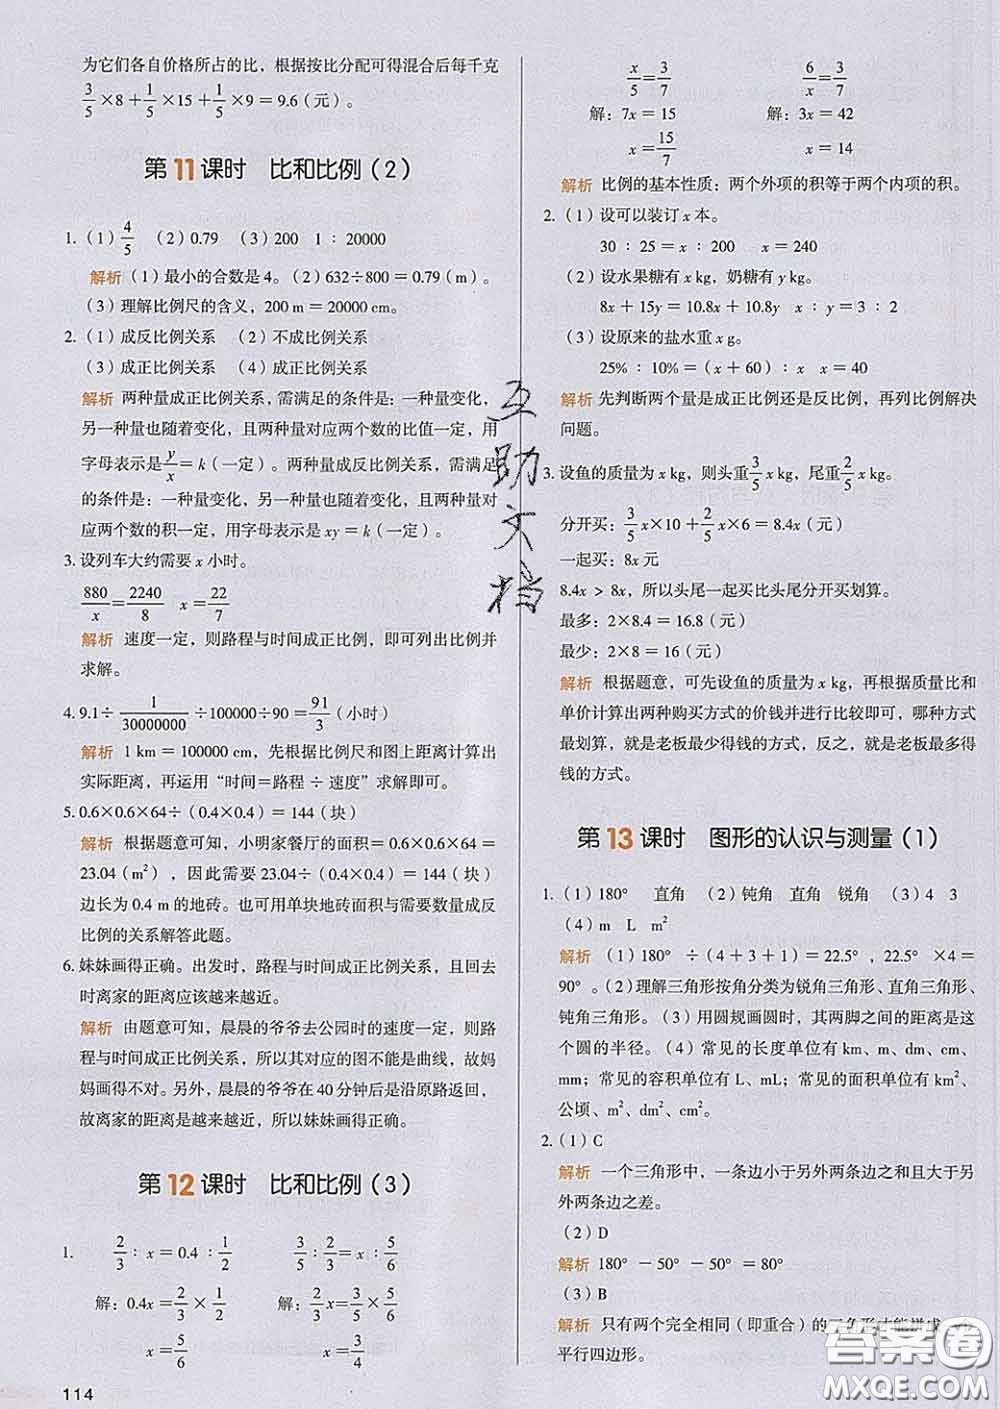 为它们各自价格所占的比，根据按比分配可得混合后每千克
3/5×8＋1/5×15＋1/5×9＝9.6（元）。
第11课时 比和比例（2）
1.（1）4/5 （2）0.79 （3）200 1：20000
解析（1）最小的合数是4。（2）632÷800＝0.79（m）。
（3）理解比例尺的含义，200 m＝20000 cm。
2.（1）成反比例关系 （2）不成比例关系
（3）成正比例关系 （4）成正比例关系
解析 两种量成正比例关系，需满足的条件是：一种量变化，
另一种量也随着变化，且两种量对应两个数的比值一定，用
字母表示是y/x＝k（一定）。两种量成反比例关系，需满足
的条件是：一种量变化，另一种量也随着变化，且两种量对
应两个数的积一定，用字母表示是xy＝k（一定）。
3. 设列车大约需要x小时。
880/x＝2240/8 x＝22/7
解析 速度一定，则路程与时间成正比例，即可列出比例并
求解。
4. 9.1÷1/30000000÷100000÷90＝91/3（小时）
解析 1 km＝100000 cm，先根据比例尺和图上距离计算出
实际距离，再运用“时间＝路程÷速度”求解即可。
5. 0.6×0.6×64÷（0.4×0.4）＝144（块）
解析 根据题意可知，小明家餐厅的面积＝0.6×0.6×64＝
23.04（m²），因此需要23.04÷（0.4×0.4）＝144（块）
边长为0.4 m的地砖。也可用单块地砖面积与需要数量成反
比例的关系解答此题。
6. 妹妹画得正确。出发时，路程与时间成正比例关系，且回去
时离家的距离应该越来越近。
解析 由题意可知，晨晨的爷爷去公园时的速度一定，则路
程与时间成正比例关系，所以其对应的图不能是曲线，故妈
妈画得不对。另外，晨晨的爷爷在40分钟后是沿原路返回，
故离家的距离是越来越近，所以妹妹画得正确。
第12课时 比和比例（3）
1. 2/3：x＝0.4：1/2 3/5：2/3＝x：5/6
解：0.4x＝2/3×1/2 解：2/3x＝3/5×5/6
x＝5/6 x＝3/4
114
x/5＝3/7 6/x＝3/7
解：7x＝15 解：3x＝42
x＝15/7 x＝14
解析 比例的基本性质：两个外项的积等于两个内项的积。
2.（1）设可以装订x本。
30：25＝x：200 x＝240
（2）设水果糖有x kg，奶糖有y kg。
8x＋15y＝10.8x＋10.8y x：y＝3：2
（3）设原来的盐水重x g。
25%：10%＝（x＋60）：x x＝40
解析 先判断两个量是成正比例还是反比例，再列比例解决
问题。
3. 设鱼的质量为x kg，则头重3/5x kg，尾重2/5x kg。
分开买：3/5x×10＋2/5x×6＝8.4x（元）
一起买：8x元
8.4x＞8x，所以头尾一起买比头尾分开买划算。
最多：2×8.4＝16.8（元）
最少：2×8＝16（元）
解析 根据题意，可先设鱼的质量为x kg，再根据质量比和
单价计算出两种购买方式的价钱并进行比较即可，哪种方式
最划算，就是老板最少得钱的方式，反之，就是老板最多得
钱的方式。
第13课时 图形的认识与测量（1）
1.（1）180° 直角 （2）钝角 直角 锐角 （3）4 3
（4）m L m²
解析 （1）180°÷（4＋3＋1）＝22.5°，22.5°×4＝
90°。（2）理解三角形按角分类为锐角三角形、直角三角形、
钝角三角形。（3）用圆规画圆时，其两脚之间的距离是这
个圆的半径。（4）常见的长度单位有km、m、dm、cm、
mm；常见的容积单位有L、mL；常见的面积单位有km²、
公顷、m²、dm²、cm²。
2.（1）C
解析 一个三角形中，一条边小于另外两条边之和且大于另
外两条边之差。
（2）D
解析 180°－50°－50°＝80°
（3）B
解析 只有两个完全相同（即重合）的三角形才能拼成
平行四边形。
互助文档
答案圈
MXQE.COM